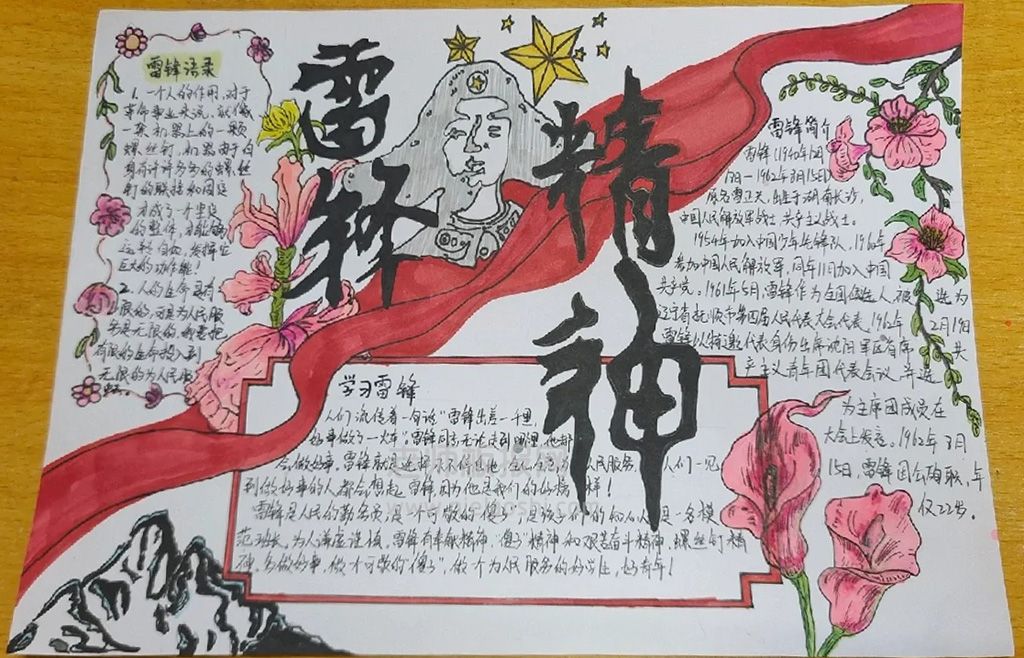 雷锋精神
雷锋语录
1. 一个人的作用，对于
革命事业来说，就像
一架机器上的一颗
螺丝钉，机器由于有
许许多多的螺丝
钉的联接和固定
才成了一个坚实
的整体，才能够
运转自如，发挥它
巨大的功作能！
2. 人的生命是有
限的，可是为人民服
务是无限的，我要把
有限的生命投入到
无限的为人民服
雷锋简介
雷锋（1940年12月
18日—1962年8月15日）
原名雷正兴，出生于湖南长沙，
中国人民解放军战士 共产主义战士。
1954年加入中国少年先锋队，1960年
参加中国人民解放军，同年11月加入中国
共产党。1961年5月，雷锋作为全团候选人，被选为
辽宁省抚顺市第四届人民代表大会代表。1962年2月19日
雷锋以特邀代表身份出席沈阳军区首席共
产主义青年团代表会议，并选
为主席团成员在
大会上发言。1962年8月
15日，雷锋因公殉职，年
仅22岁。
学习雷锋
人们流传着一句话“雷锋出差一千里，
好事做了一火车”雷锋同志无论走到哪里，他都
会做好事，雷锋就是这样 人民服务 人们一见
到做好事的人都会想起雷锋因为他是我们的好榜样！
雷锋是人民的勤务员，是一个可敬的“傻子”，是孩子们的知心人更是一名模
范班长，为人谦虚谨慎，雷锋有奉献精神，“傻子”精神和艰苦奋斗精神，螺丝钉精
神，多做好事，做个可敬的“傻子”，做个为人民服务的好学生，好青年！